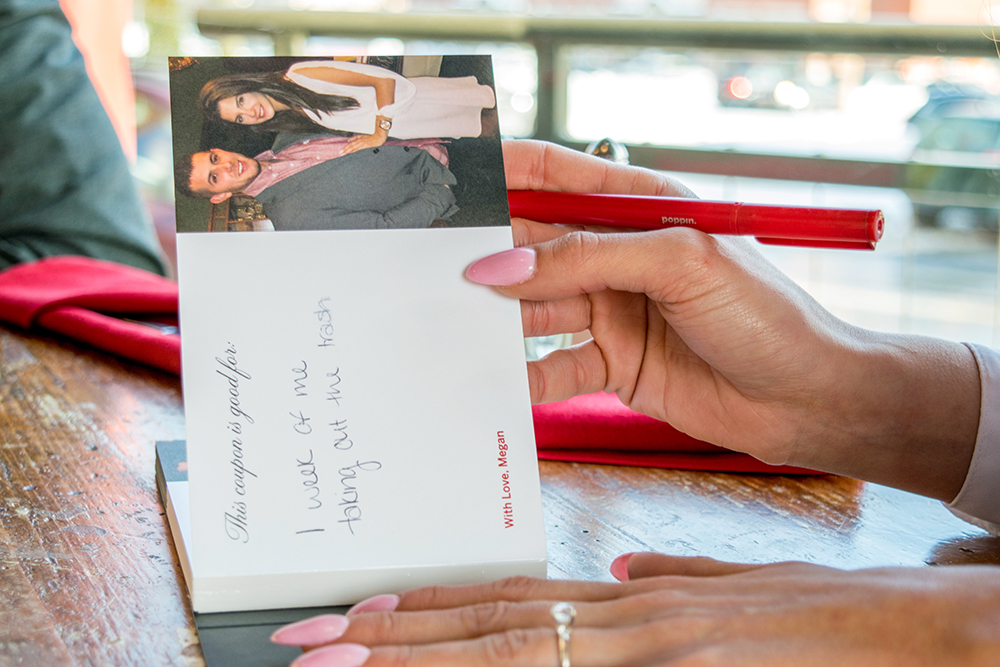 This coupon is good for:
1 week of me
taking out the trash
With Love, Megan
poppin.